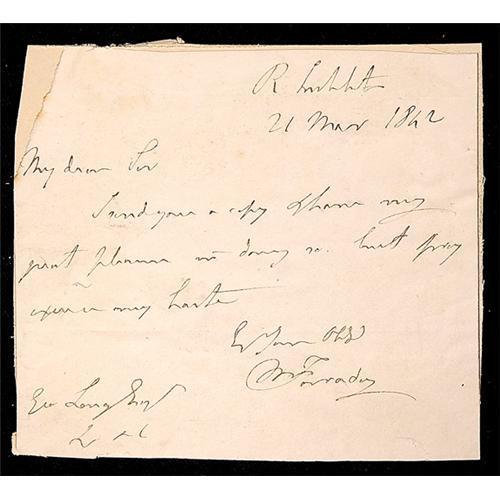 R Instit
21 Mar 1842
My dear Sir
I send you a copy & have very
great pleasure in doing so. but pray
excuse my haste
Ever Yours
M Faraday
Geo Long Esq
&c &c